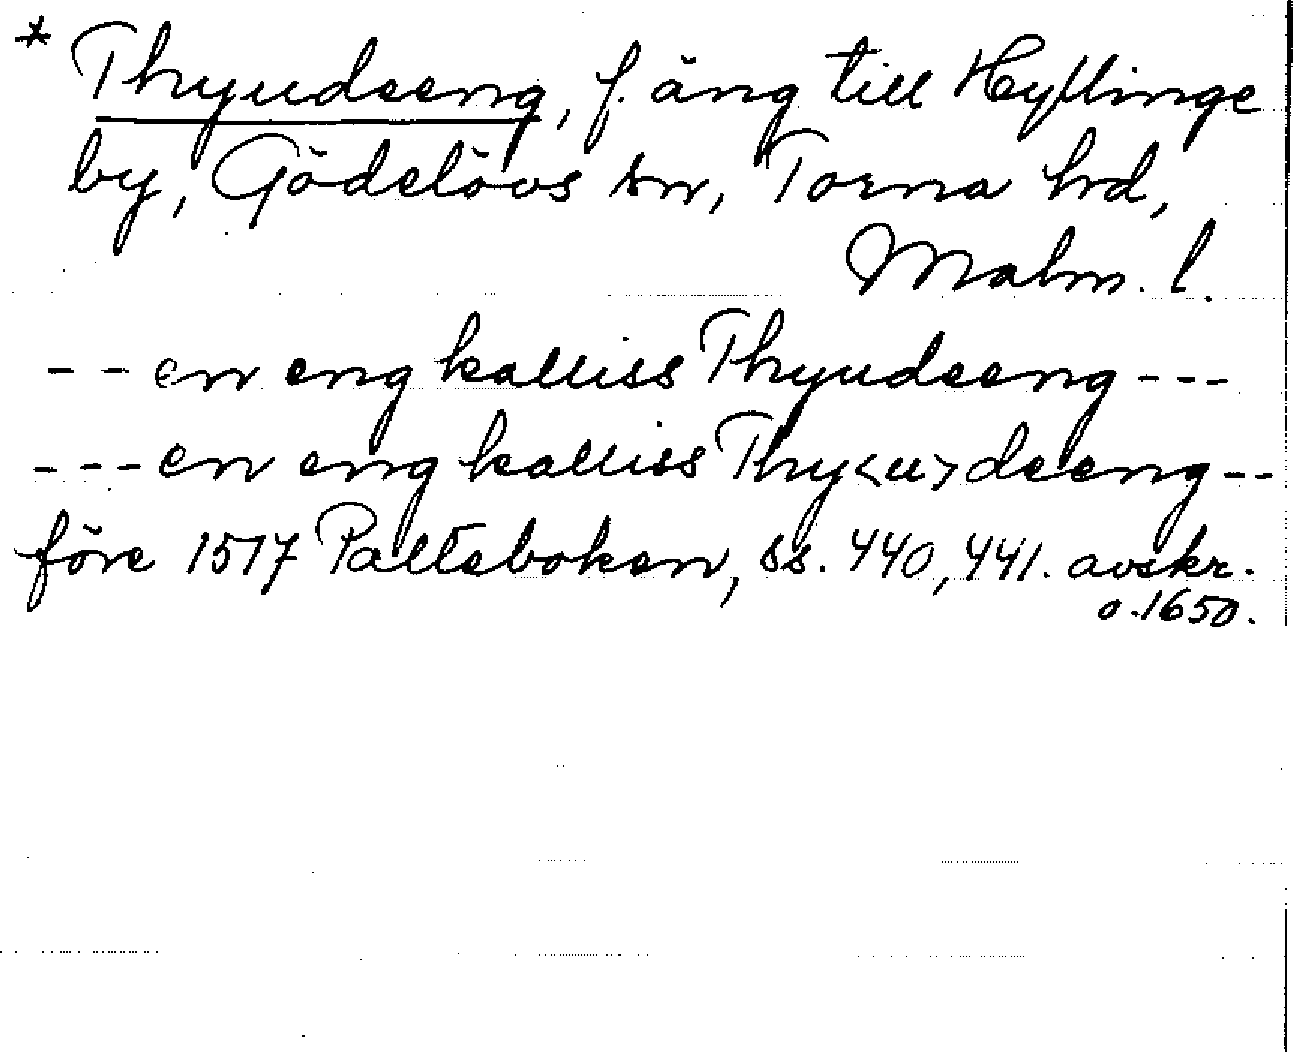 * Thyudeeng, f. äng till Hyllinge
by, Gödelövs sn, Torna hrd,
Malm. l.
-- en eng kalliss Thyudeeng ---
--- en eng kalliss Thy<u>deeng --
före 1517 Palteboken, ss. 440, 441. avskr.
o. 1650.